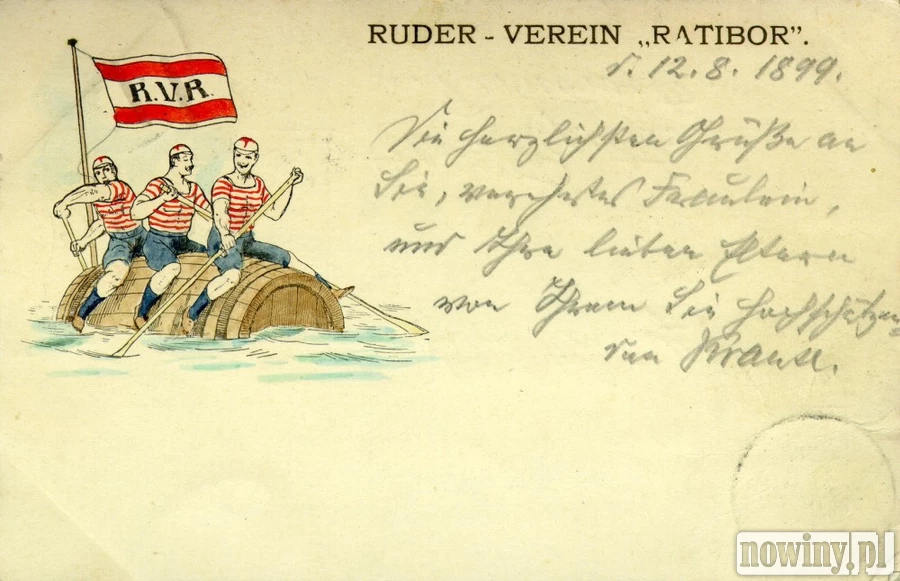 RUDER - VEREIN „RATIBOR”.
d. 12.8.1899.
R.V.R.
Die herzlichsten Grüße an
Sie, verehrtes Fräulein,
und Ihre lieben Eltern
von Ihrem Sie hochschätzen=
den Krause.
nowiny.pl